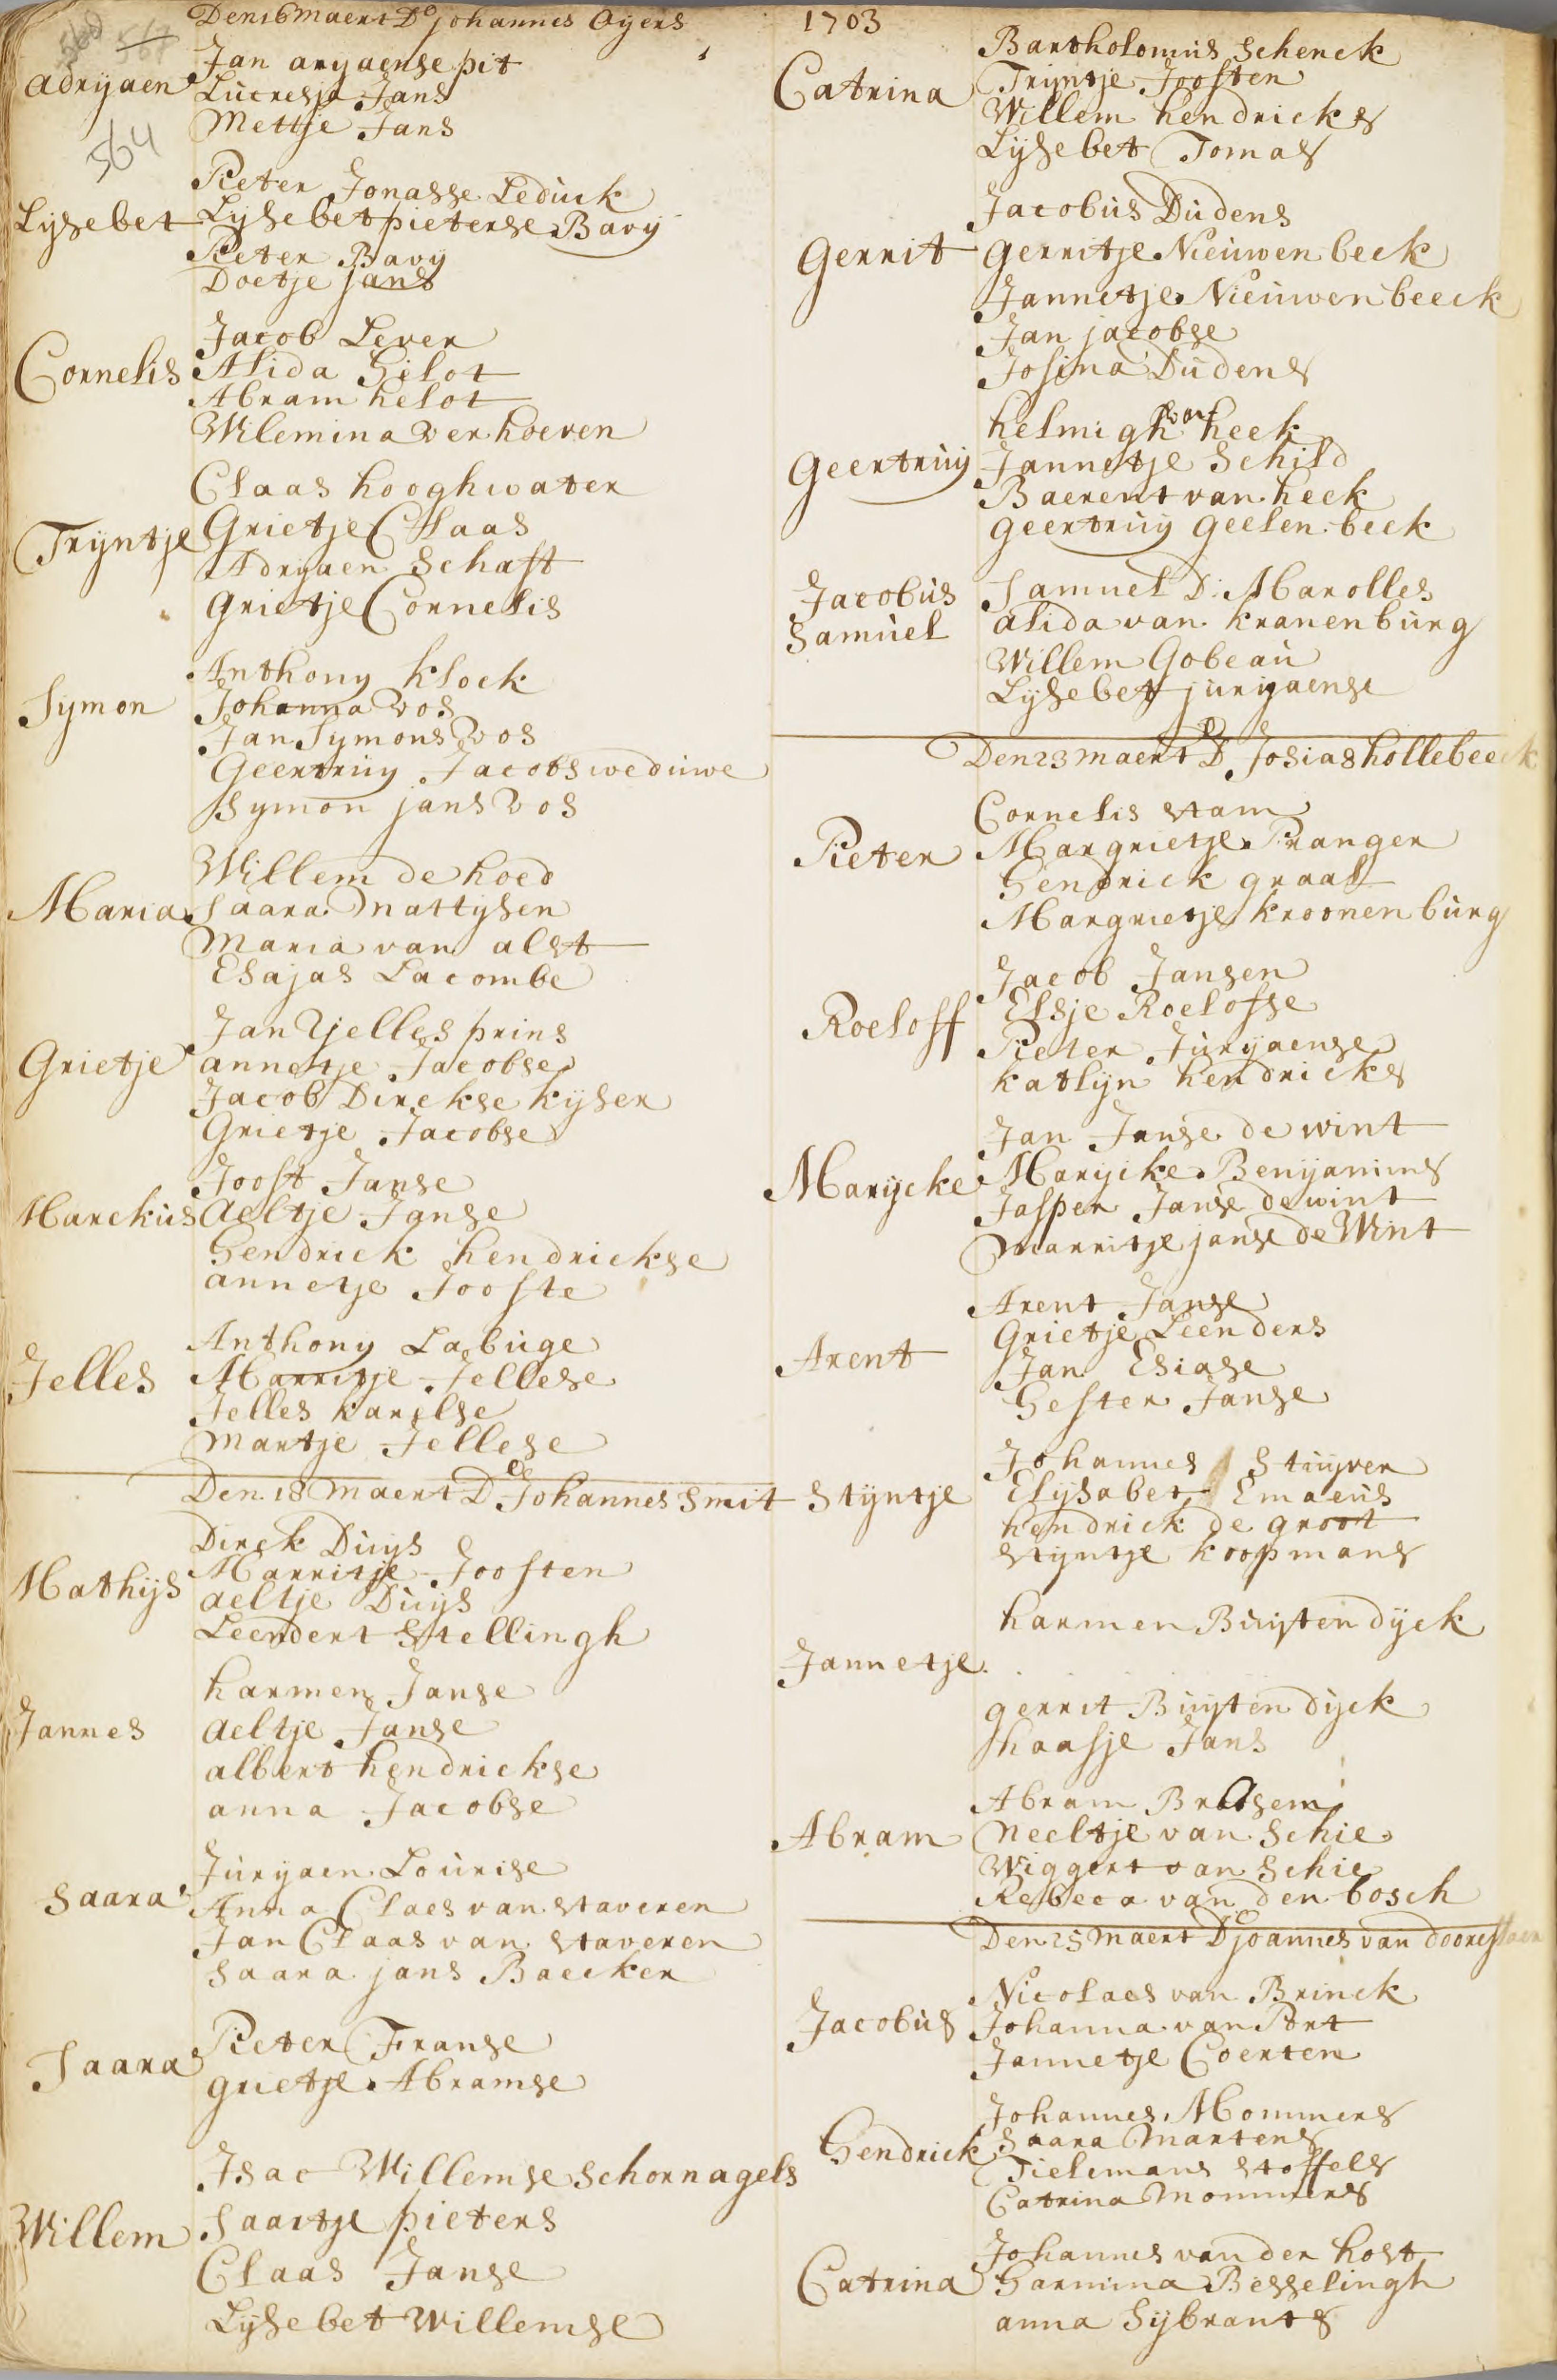 Den 16 Maert Do Johannes Oijers
1703
568 567
564
Adrijaen
Jan arijaense pit
Lucresja Jans
Mettje Jans
Lijsebet
Pieter Jonasse Leduck
Lijsebet pieterse Bavij
Pieter Bavij
Doetje Jans
Cornelis
Jacob Lever
Alida Gilot
Abram helot
Wilemina verhoeven
Trijntje
Claas hooghwater
Grietje Claas
Adrijaen Schaft
Grietje Cornelis
Sijmon
Anthony klock
Johanna Vos
Jan Sijmons Vos
Geertruij Jacobs weduwe
Sijmon jans Vos
Maria
Willem de hoed
Saara Mattijsen
Maria van alst
Esajas Lacombe
Grietje
Jan Yelles prins
annetje Jacobse
Jacob Dirckse kijser
Grietje Jacobse
Marckus
Joost Janse
Aeltje Janse
Hendrick hendrickse
annetje Jooste
Jelles
Anthony Labuge
Marritje Jellese
Jelles karelse
Martje Jellese
Den 18 Maert Do Johannes Smit
Mathijs
Dirck Duijs
Marritje Joosten
aeltje Duijs
Leendert Stellingh
Jannes
harmen Janse
Aeltje Janse
albert hendrickse
anna Jacobse
Saara
Jurijaen Lourise
Anna Claes van staveren
Jan Claas van staveren
Saara jans Baecker
Saara
Pieter Franse
Grietje Abramse
Willem
Isac Willemse Schornagels
Saartje pieters
Claas Janse
Lijsebet Willemse
Catrina
Bartholomus Schenck
Trijntje Joosten
Willem hendricks
Lijsebet Tomas
Gerrit
Jacobus Dudens
Gerritje Nieuwenbeek
Jannetje Nieuwenbeeck
Jan jacobse
Josina Dudens
Geertruij
helmigh van heek
Jannetje Schild
Baerent van heek
Geertruij Geelenbeek
Jacobus
Samuel
Samuel D: Marolles
alida van kranenburg
Willem Gobeau
Lijsebet jurijaense
Den 23 Maert Do Josias hollebeeck
Pieter
Cornelis stam
Margrietje Pranger
Hendrick graaf
Margrietje kroonenburg
Roeloff
Jacob Jansen
Elsje Roelofse
Pieter Jurijaense
katlijn hendricks
Marijcke
Jan Janse de wint
Marijcke Benijamins
Jasper Janse de wint
Marritje janse de Wint
Arent
Arent Janse
Grietje Leenders
Jan Esiase
Hester Janse
Stijntje
Johannes Stuijver
Elijsabet Emaeus
hendrick de groot
Stijntje koopmans
Jannetje
harmen Buijtendijck
gerrit Buijtendijck
haasje Jans
Abram
Abram Brasem
Neeltje van Schie
Wiggert van Schie
Rebeca van den bosch
Den 25 Maert Do Joannes van doores
Jacobus
Nicolaes van Brinck
Johanna van Port
Jannetje Coerten
Hendrick
Johannes Mommers
Saara Martens
Tielemans Stoffels
Catrina Mommers
Catrina
Johannes van der host
Harmina Besselingh
anna Sijbrants